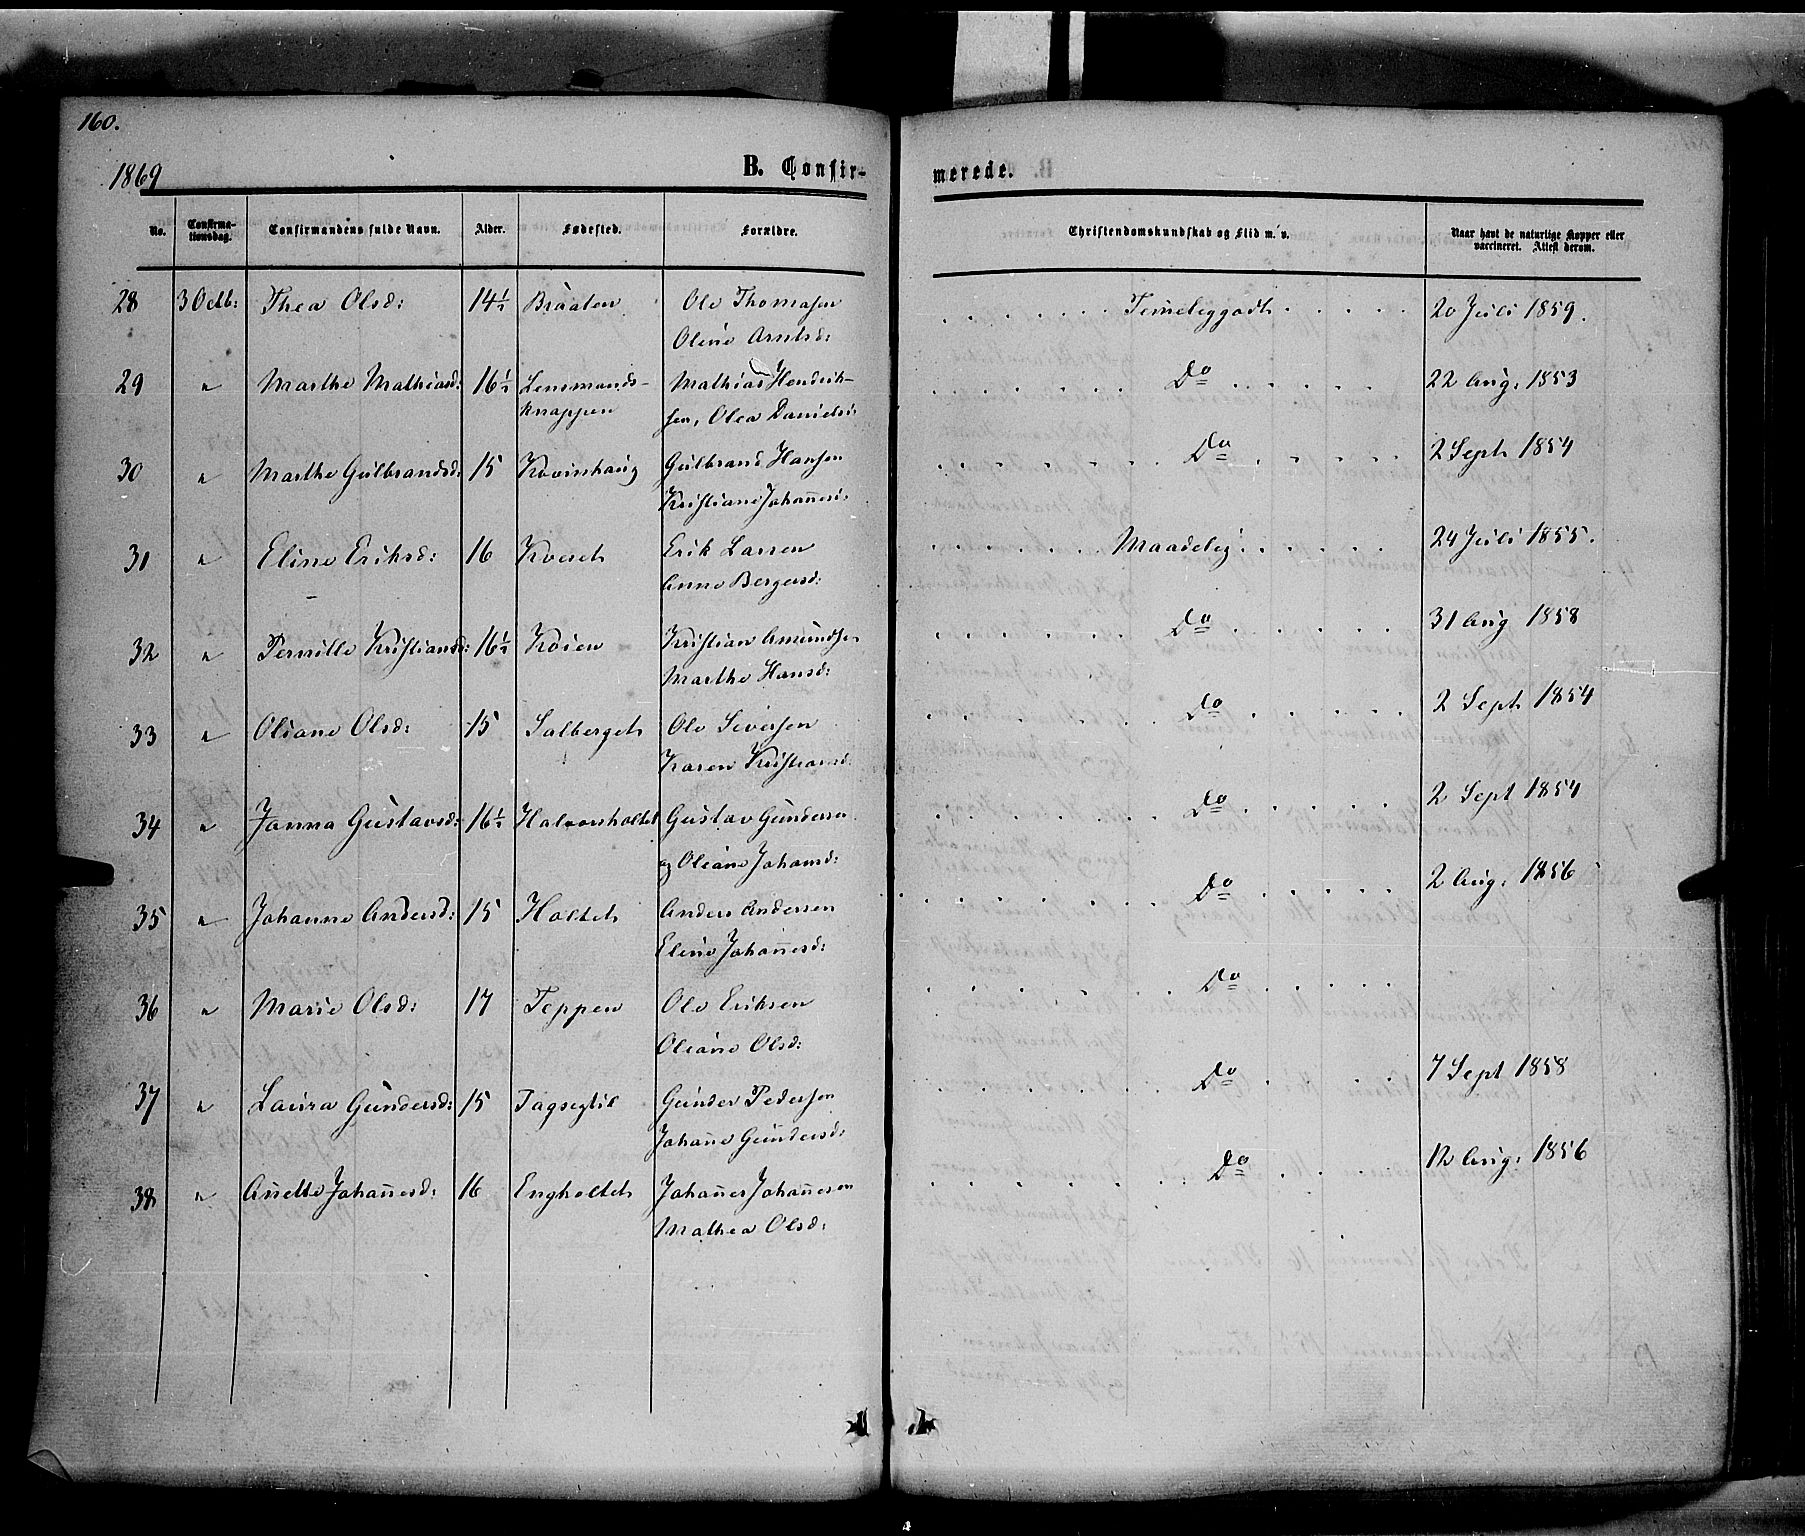 160.
1869
B. Confir-
merede.
No. Confirma-tionsdag. Confirmandens fulde Navn. Alder. Fødested. Forældre. Christendomskundskab og Flid m. v. Naar havt de naturlige Kopper eller vaccineret. Attest derom.
28 3 Octb: Thea Olsd: 14½ Braaten Ole Thomasen Temeliggodt 20 Juli 1859.
Oline Arntsd:
29 " Marthe Mathiasd: 16½ Lensmands- Mathias Hendrik- Do 22 Aug: 1853
knappen sen, Olea Danielsd:
30 " Marthe Gulbrandsd: 15 Kvernhaug Gulbrand Hansen Do 2 Sept 1854
Kristiane Johannesd:
31 " Eline Eriksd: 16 Kveset Erik Larsen Maadelig 24 Juli 1855.
Anne Bergersd:
32 " Pernille Kristiansd: 16½ Koien Kristian Amundsen Do 31 Aug 1858
Marthe Hansd:
33 " Oliane Olsd: 15 Salberget Ole Siversen Do 2 Sept 1854
Karen Kristiansd:
34 " Janna Gustavsd: 16½ Halvorsholtet Gustav Gundersen Do 2 Sept 1854
og Oliane Johansd:
35 " Johanne Andersd: 15 Holtet Anders Andersen Do 2 Aug: 1856
Eline Johannesd:
36 " Marie Olsd: 17 Teppen Ole Eriksen Do
Oliane Olsd:
37 " Laura Gundersd: 15 Gunder Pedersen Do 7 Sept 1858
Johanne Gundersd:
38 " Anette Johannesd: 16 Engholtet Johannes Johannesen Do 12 Aug: 1856
Mathea Olsd: